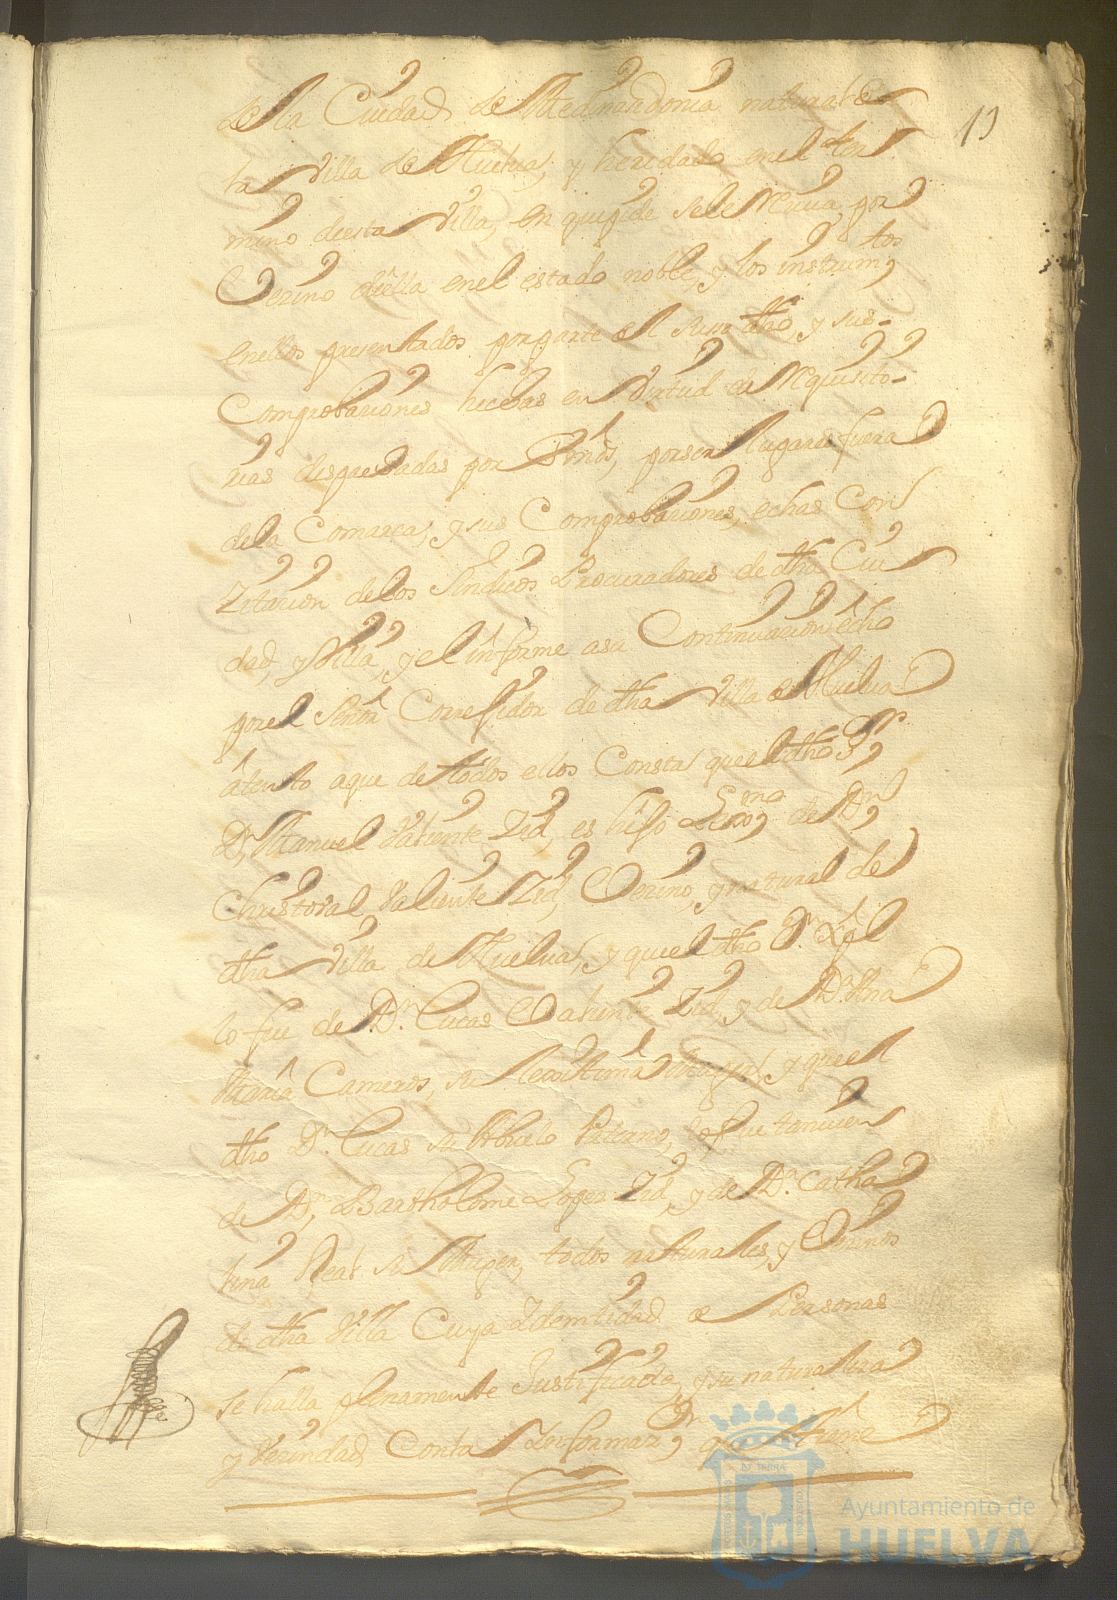 de la Ciudad de Medinasidonia natural de
ta Villa de Huelva, y heredado en el ter
mino de esta Villa, en que pide se le reciva por
Vezino de ella en el estado noble, y los instrumtos
en ellos presentados por parte del suso dho, y sus
Comprobaziones hechas en Virtud de requisito-
rias despachadas por Vmds, por ser lugares fuera
de la Comarca, y sus Comprobaziones, echas Con
Zitazion de los Sindicos Procuradores de dha Ciu
dad, y Villa, y el informe a su Continuazion echo
por el Señor Correjidor de dha Villa de Huelva
atento a que de todos ellos Consta que el dho Sr
Dn Manuel Valiente Zid, es hijo Lexmo de Dn
Christoval Valiente Zid, Vezino, y natural de
dha Villa de Huelva, y que el dho Dn Xptl
lo fue de Dn Lucas Valiente Zid, y de Da Ana
Maria Cameros, su lexitima Muger, y que el
dho Dn Lucas su Abuelo Paterno, lo fue tamvien
de Dn Bartholome Lopez Zid, y de Da Catha
lina Real su Muger, todos naturales, y Vezinos
de dha Villa Cuya Ydemtidad de Personas
se halla plenamente Justificada, y su naturaleza
y Vezindad Con ta Ynformazn qa tiene
13
Ayuntamiento de
HUELVA